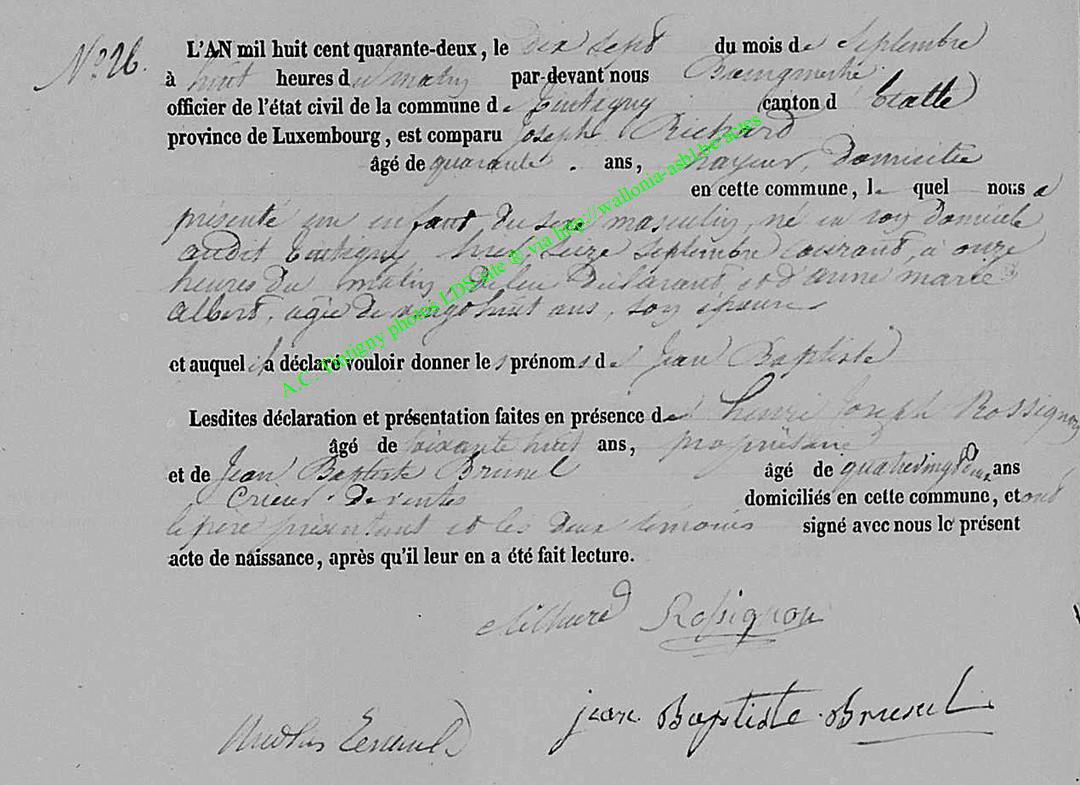 N° 26.
L'AN mil huit cent quarante-deux, le dix sept du mois de Septembre
à huit heures du matin par-devant nous Bourgmestre
officier de l'état civil de la commune de Tintigny canton d'Etalle
province de Luxembourg, est comparu Joseph Richard
âgé de quarante ans, domicilié
en cette commune, le quel nous a
présenté un enfant du sexe masculin né en son domicile
audit Tintigny hier seize Septembre courant, à onze
heures du matin, de lui Déclarant, et d'anne marie
albert, agée de vingt huit ans, son épouse
et auquel il a déclaré vouloir donner les prénoms de Jean Baptiste
Lesdites déclaration et présentation faites en présence de henri Joseph Rossignon
âgé de soixante huit ans, propriétaire
et de Jean Baptiste Brunel âgé de quatrevingt deux ans
Crieur de ventes domiciliés en cette commune, et ont
le père présentant et les deux témoins signé avec nous le présent
acte de naissance, après qu'il leur en a été fait lecture.
Rossignon
jean Baptiste Brunel
Nicolas
A.C. Tintigny photos LDS site @ via http://wallonia-asbl.be/actes